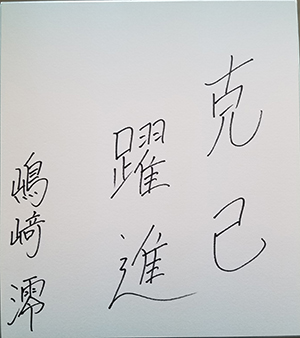 克己
躍進
嶋﨑 澪